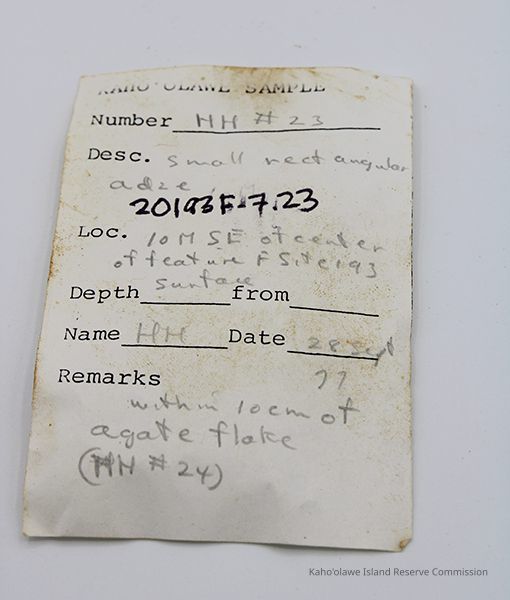 KAHO'OLAWE SAMPLE
Number HH # 23
Desc. small rectangular
adze
20193F-7.23
Loc. 10 M SE of center
of feature F Site 193
surface
Depth from
Name HH Date 28 Sept
77
Remarks
within 10cm of
agate flake
(HH # 24)
Kaho'olawe Island Reserve Commission